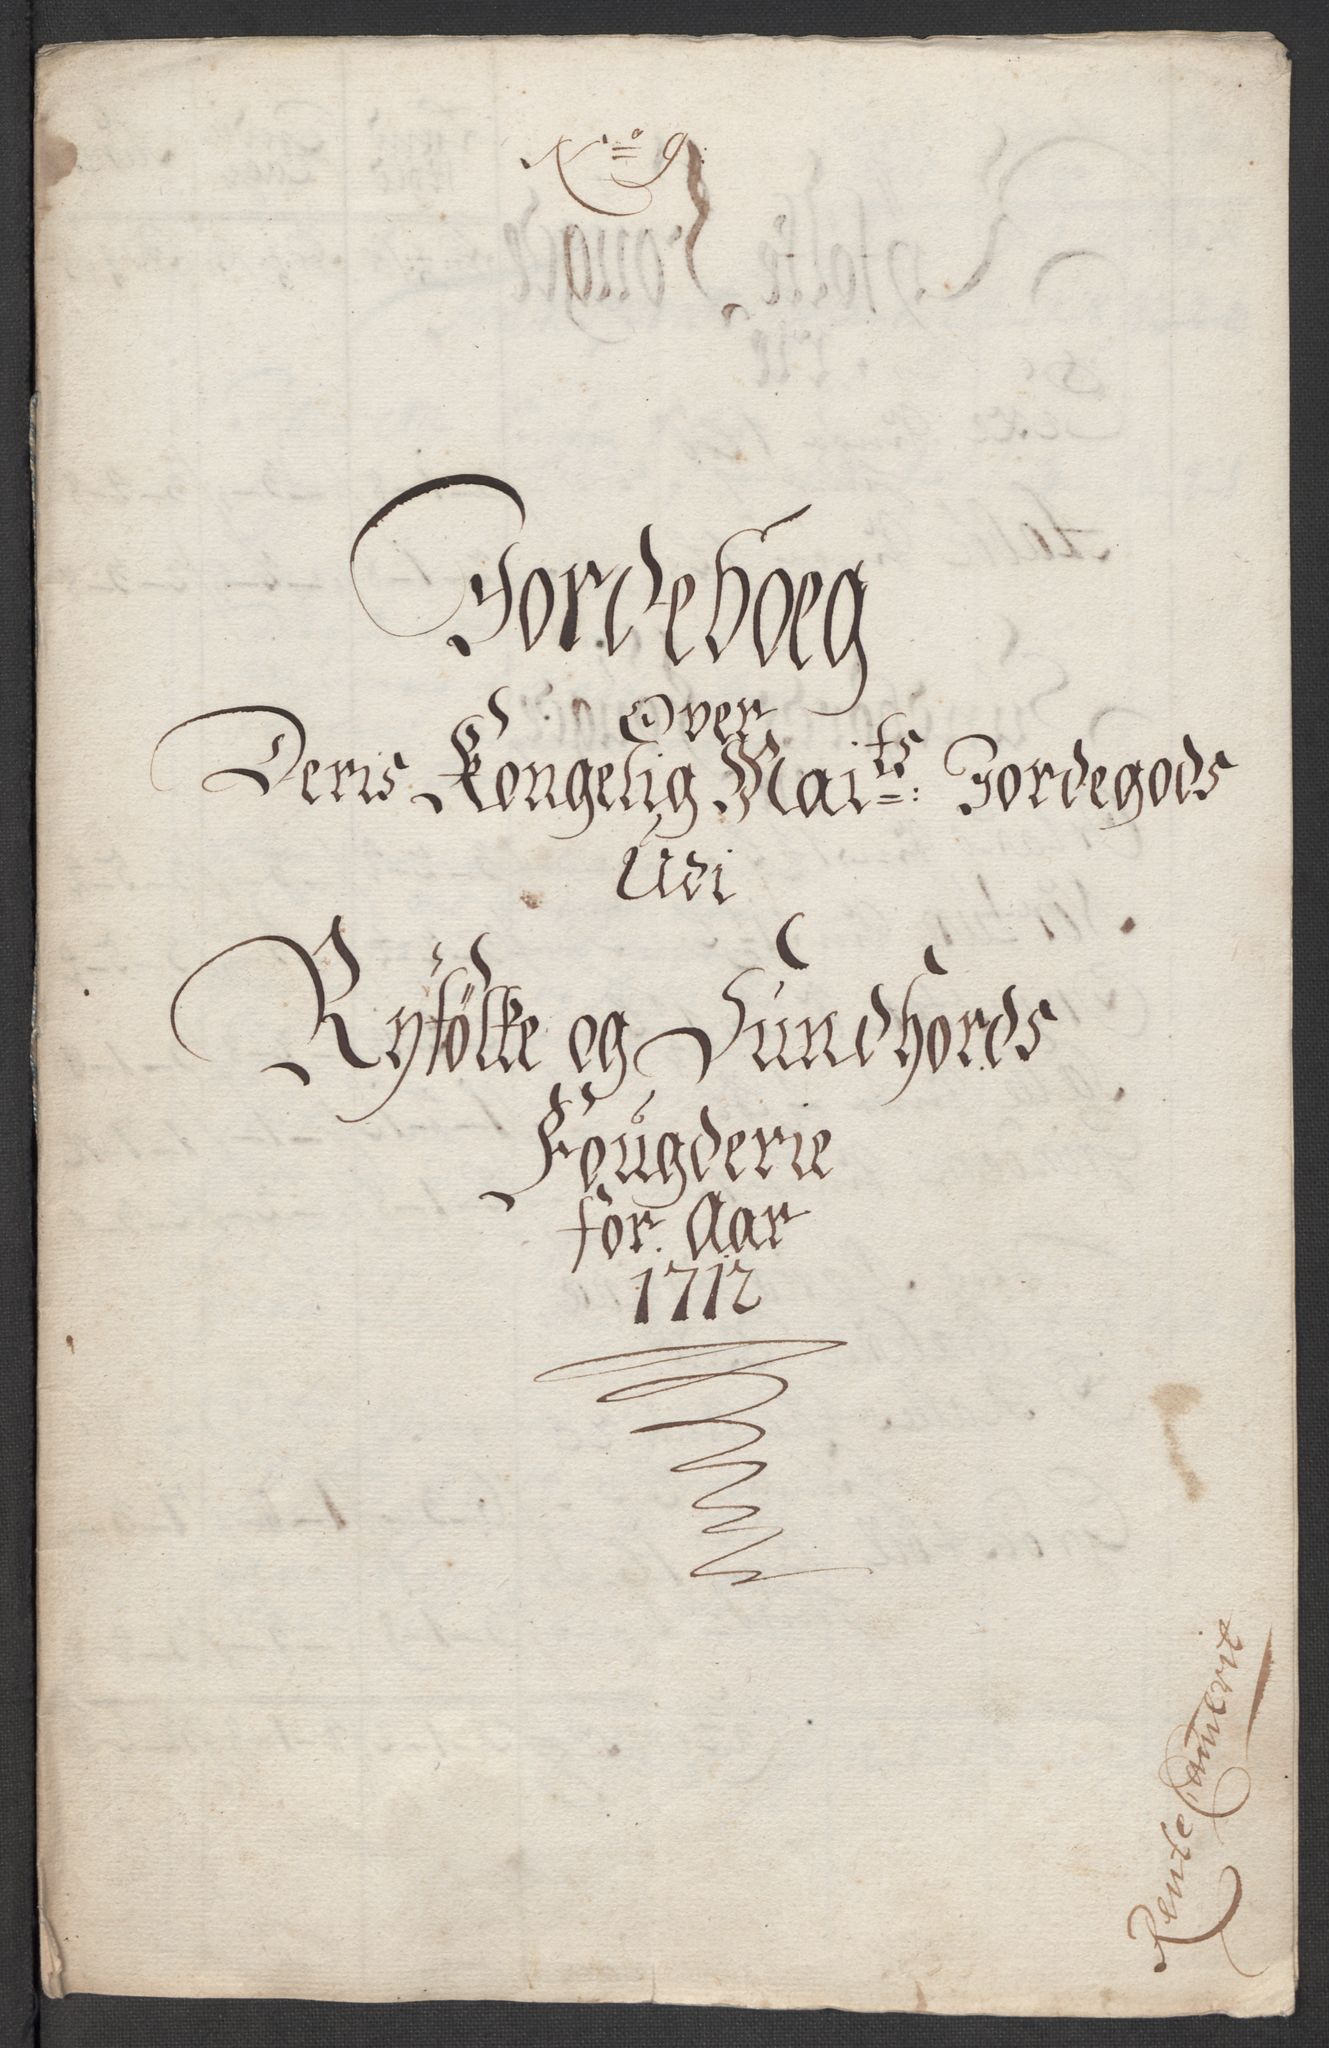 No 9.
Jordeboeg
Over
Deris Kongelig Maits: Jordegods
Udi
Ryfölke og Sundhords
Fougderie
for Aar
1712
Rente Camerit